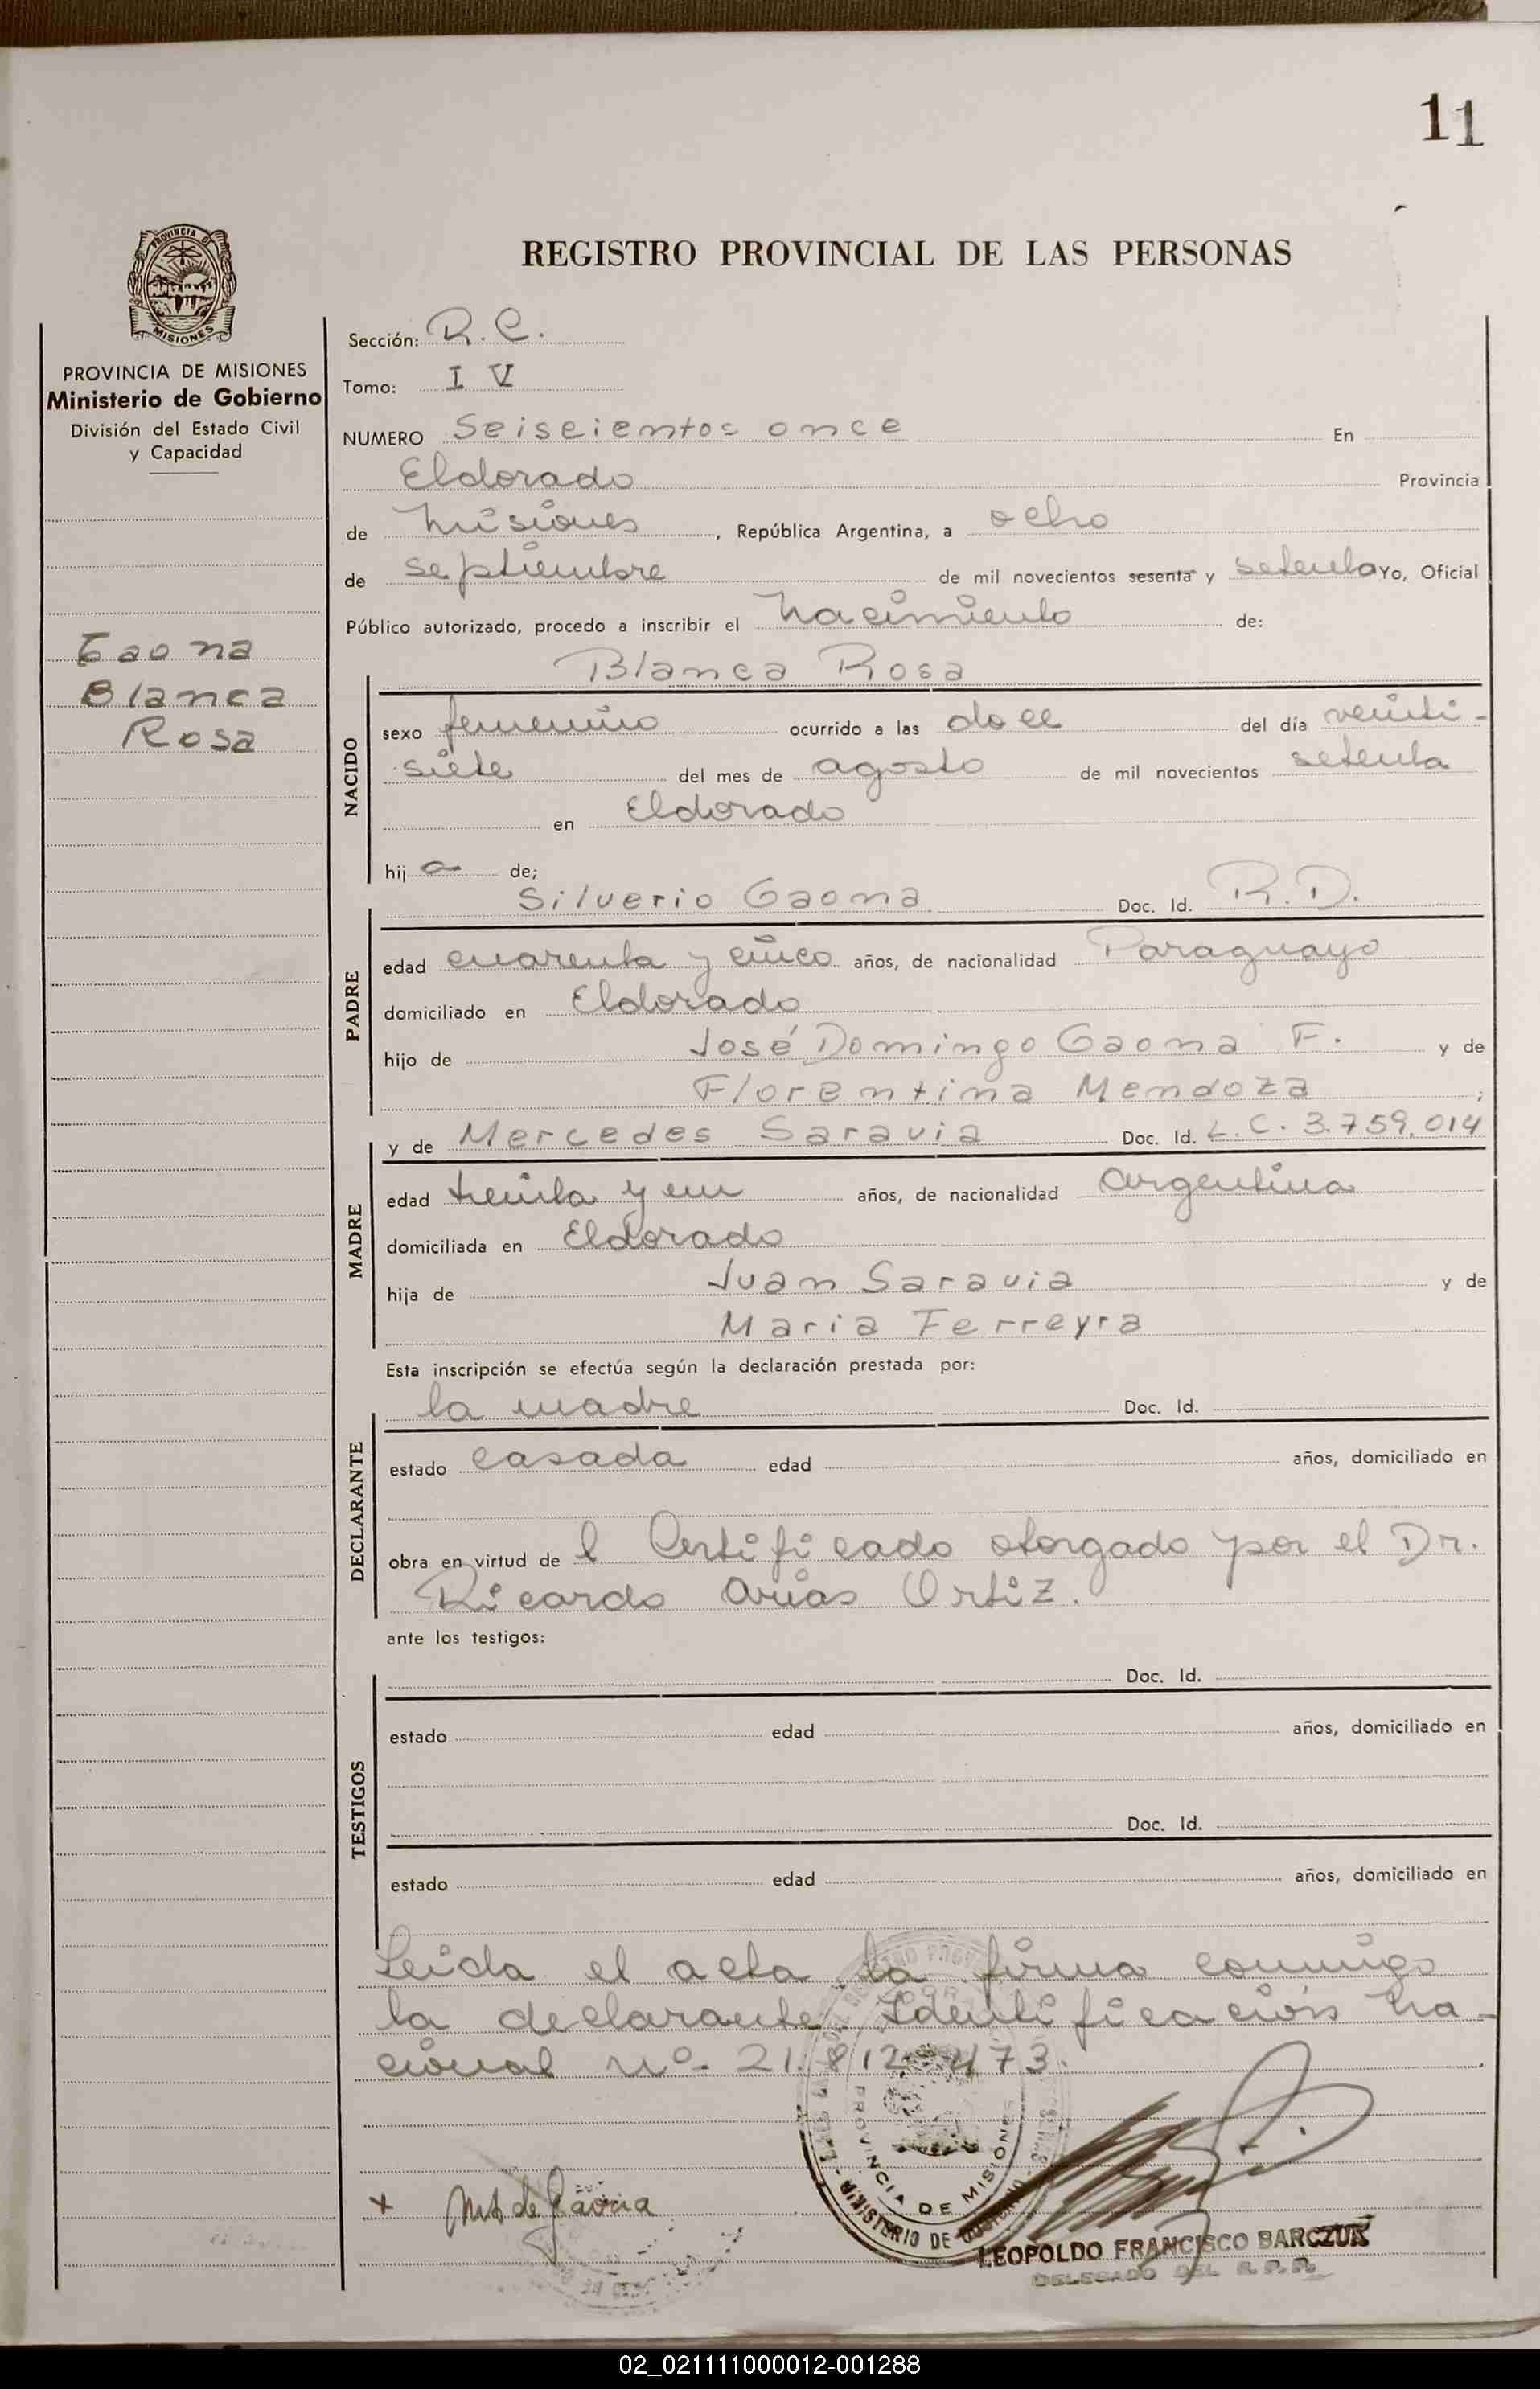 11
PROVINCIA DE
MISIONES
REGISTRO PROVINCIAL DE LAS PERSONAS
PROVINCIA DE MISIONES
Ministerio de Gobierno
División del Estado Civil
y Capacidad
Gaona
Blanca
Rosa
Sección: R.C.
Tomo: IV
NUMERO Seiscientos once En
Eldorado Provincia
de Misiones, República Argentina, a ocho
de septiembre de mil novecientos sesenta y setenta Yo, Oficial
Público autorizado, procedo a inscribir el nacimiento de:
Blanca Rosa
NACIDO
sexo femenino ocurrido a las doce del día veinti-
siete del mes de agosto de mil novecientos setenta
en Eldorado
hija de;
Silverio Gaona Doc. Id. R.D.
PADRE
edad cuarenta y cinco años, de nacionalidad Paraguayo
domiciliado en Eldorado
hijo de José Domingo Gaona F. y de
Florentina Mendoza ;
y de Mercedes Saravia Doc. Id. L.C. 3.759.014
MADRE
edad treinta y un años, de nacionalidad argentina
domiciliada en Eldorado
hija de Juan Saravia y de
Maria Ferreyra
Esta inscripción se efectúa según la declaración prestada por:
la madre Doc. Id.
DECLARANTE
estado casada edad años, domiciliado en
obra en virtud de l Certificado otorgado por el Dr.
Ricardo Arias Ortiz.
ante los testigos:
Doc. Id.
TESTIGOS
estado edad años, domiciliado en
Doc. Id.
estado edad años, domiciliado en
Leida el acta la firma conmigo
la declarante Identificación Na-
cional nº 21.812.473.
PROVINCIA DE MISIONES
MINISTERIO DE GOBIERNO
x de Gaona
LEOPOLDO FRANCISCO BARCZUK
DELEGADO DEL R.P.P.
02_021111000012-001288